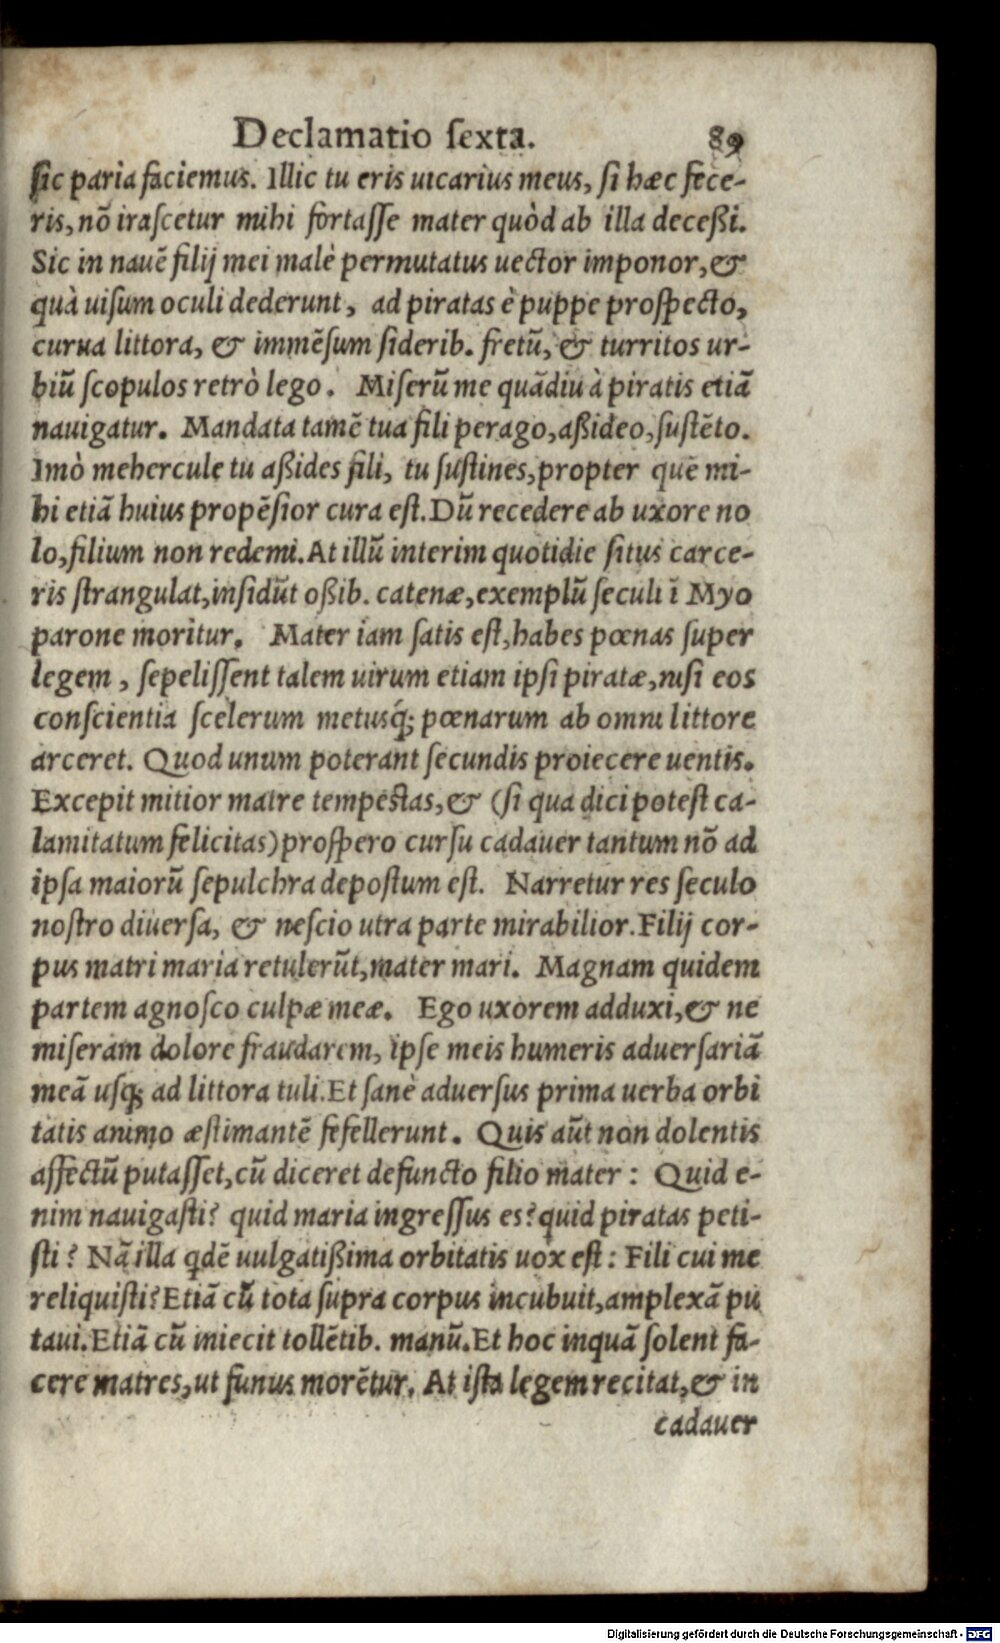 Declamatio sexta. 89
sic paria faciemus. Illic tu eris uicarius meus, si hæc fece-
ris, nō irascetur mihi fortasse mater quòd ab illa deceßi.
Sic in nauē filij mei malè permutatus uector imponor, &
quà uisum oculi dederunt, ad piratas è puppe prospecto,
curua littora, & immēsum siderib. fretū, & turritos ur-
biū scopulos retrò lego. Miserū me quādiu à piratis etiā
nauigatur. Mandata tamē tua fili perago, aßideo, sustēto.
Imò mehercule tu aßides fili, tu sustines, propter quē mi-
hi etiā huius propēsior cura est. Dū recedere ab uxore no
lo, filium non redemi. At illū interim quotidie situs carce-
ris strangulat, insidūt oßib. catenæ, exemplū seculi ī Myo
parone moritur. Mater iam satis est, habes pœnas super
legem, sepelissent talem uirum etiam ipsi piratæ, nisi eos
conscientia scelerum metusq́; pœnarum ab omni littore
arceret. Quod unum poterant secundis proiecere uentis.
Excepit mitior matre tempestas, & (si qua dici potest ca-
lamitatum felicitas) prospero cursu cadauer tantum nō ad
ipsa maiorū sepulchra depostum est. Narretur res seculo
nostro diuersa, & nescio utra parte mirabilior. Filij cor-
pus matri maria retulerūt, mater mari. Magnam quidem
partem agnosco culpæ meæ. Ego uxorem adduxi, & ne
miseram dolore fraudarem, ipse meis humeris aduersariā
meā usq; ad littora tuli. Et sanè aduersus prima uerba orbi
tatis animo æstimantē fefellerunt. Quis aūt non dolentis
affectū putasset, cū diceret defuncto filio mater: Quid e-
nim nauigasti? quid maria ingressus es? quid piratas peti-
sti? Nā illa qdē uulgatißima orbitatis uox est: Fili cui me
reliquisti? Etiā cū tota supra corpus incubuit, amplexā pu
taui. Etiā cū iniecit tollētib. manū. Et hoc inquā solent fa-
cere matres, ut funus morētur. At ista legem recitat, & in
cadauer
Digitalisierung gefördert durch die Deutsche Forschungsgemeinschaft - DFG